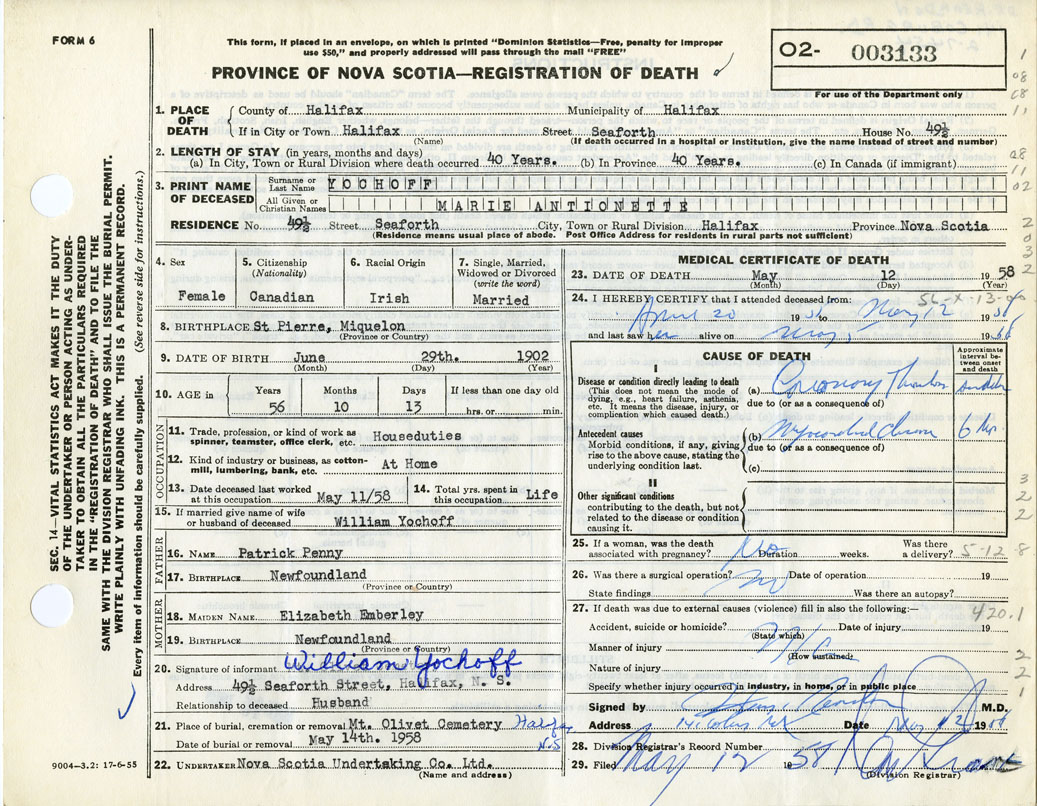 FORM 6
This form, if placed in an envelope, on which is printed "Dominion Statistics—Free, penalty for improper
use $50," and properly addressed will pass through the mail "FREE"
PROVINCE OF NOVA SCOTIA—REGISTRATION OF DEATH
02- 003133
For use of the Department only
1. PLACE OF DEATH
County of Halifax Municipality of Halifax
If in City or Town Halifax Street Seaforth House No. 49½
(Name) (If death occurred in a hospital or institution, give the name instead of street and number)
2. LENGTH OF STAY (in years, months and days)
(a) In City, Town or Rural Division where death occurred 40 Years. (b) In Province 40 Years. (c) In Canada (if immigrant)
3. PRINT NAME OF DECEASED
Surname or Last Name YOCHOFF
All Given or Christian Names MARIE ANTIONETTE
RESIDENCE No. 49½ Street Seaforth City, Town or Rural Division Halifax Province Nova Scotia
(Residence means usual place of abode. Post Office Address for residents in rural parts not sufficient)
4. Sex
Female
5. Citizenship
(Nationality)
Canadian
6. Racial Origin
Irish
7. Single, Married,
Widowed or Divorced
(write the word)
Married
8. BIRTHPLACE St Pierre, Miquelon
(Province or Country)
9. DATE OF BIRTH June 29th. 1902
(Month) (Day) (Year)
10. AGE in
Years Months Days If less than one day old
56 10 13 hrs. or min.
OCCUPATION
11. Trade, profession, or kind of work as
spinner, teamster, office clerk, etc. Houseduties
12. Kind of industry or business, as cotton-
mill, lumbering, bank, etc. At Home
13. Date deceased last worked
at this occupation May 11/58
14. Total yrs. spent in
this occupation Life
15. If married give name of wife
or husband of deceased William Yochoff
FATHER
16. NAME Patrick Penny
17. BIRTHPLACE Newfoundland
(Province or Country)
MOTHER
18. MAIDEN NAME Elizabeth Emberley
19. BIRTHPLACE Newfoundland
(Province or Country)
20. Signature of informant William Yochoff
Address 49½ Seaforth Street, Halifax, N. S.
Relationship to deceased Husband
21. Place of burial, cremation or removal Mt. Olivet Cemetery Halifax
N.S
Date of burial or removal May 14th. 1958
22. UNDERTAKER Nova Scotia Undertaking Co. Ltd.
(Name and address)
9004—3.2: 17-6-55
SEC. 14—VITAL STATISTICS ACT MAKES IT THE DUTY
OF THE UNDERTAKER OR PERSON ACTING AS UNDER-
TAKER TO OBTAIN ALL THE PARTICULARS REQUIRED
IN THE "REGISTRATION OF DEATH" AND TO FILE THE
SAME WITH THE DIVISION REGISTRAR WHO SHALL ISSUE THE BURIAL PERMIT.
WRITE PLAINLY WITH UNFADING INK. THIS IS A PERMANENT RECORD.
Every item of information should be carefully supplied. (See reverse side for instructions.)
MEDICAL CERTIFICATE OF DEATH
23. DATE OF DEATH May 12 1958
(Month) (Day) (Year)
24. I HEREBY CERTIFY that I attended deceased from:
April 20 19 to May 12 19
and last saw her alive on May 19
CAUSE OF DEATH
Approximate
interval be-
tween onset
and death
I
Disease or condition directly leading to death
(This does not mean the mode of
dying, e.g., heart failure, asthenia,
etc. It means the disease, injury, or
complication which caused death.)
(a) Coronary
due to (or as a consequence of)
Antecedent causes
Morbid conditions, if any, giving
rise to the above cause, stating the
underlying condition last.
(b) Myocardial 6
due to (or as a consequence of)
(c)
II
Other significant conditions
contributing to the death, but not
related to the disease or condition
causing it.
25. If a woman, was the death
associated with pregnancy? No Duration weeks. Was there
a delivery? 5-12-8
26. Was there a surgical operation? no Date of operation 19
State findings Was there an autopsy?
27. If death was due to external causes (violence) fill in also the following:—
420.1
Accident, suicide or homicide? Date of injury 19
(State which)
Manner of injury
(How sustained)
Nature of injury
Specify whether injury occurred in industry, in home, or in public place
Signed by M.D.
Address Date May 12 19
28. Division Registrar's Record Number
29. Filed May 12 1958
(Division Registrar)